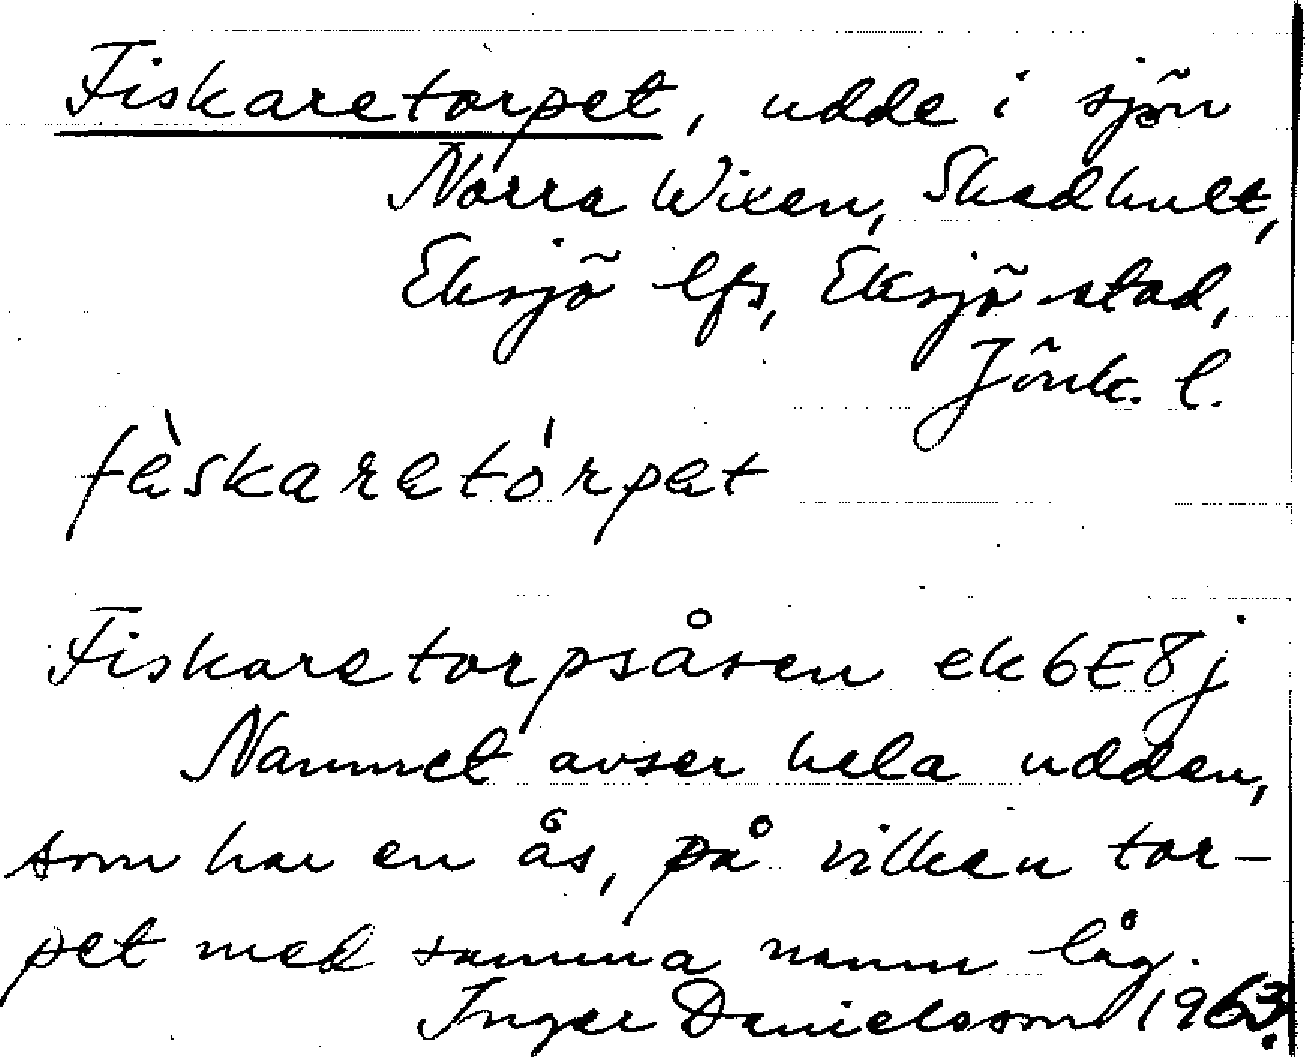 Fiskaretorpet, udde i sjön
Norra Wixen, Skedhult,
Eksjö lfs, Eksjö stad,
Jönk. l.
fèskaretórpet
Fiskaretorpsåsen ek 6E8j
Namnet avser hela udden,
som har en ås, på vilken tor-
pet med samma namn låg.
Inger Danielsson 1963.